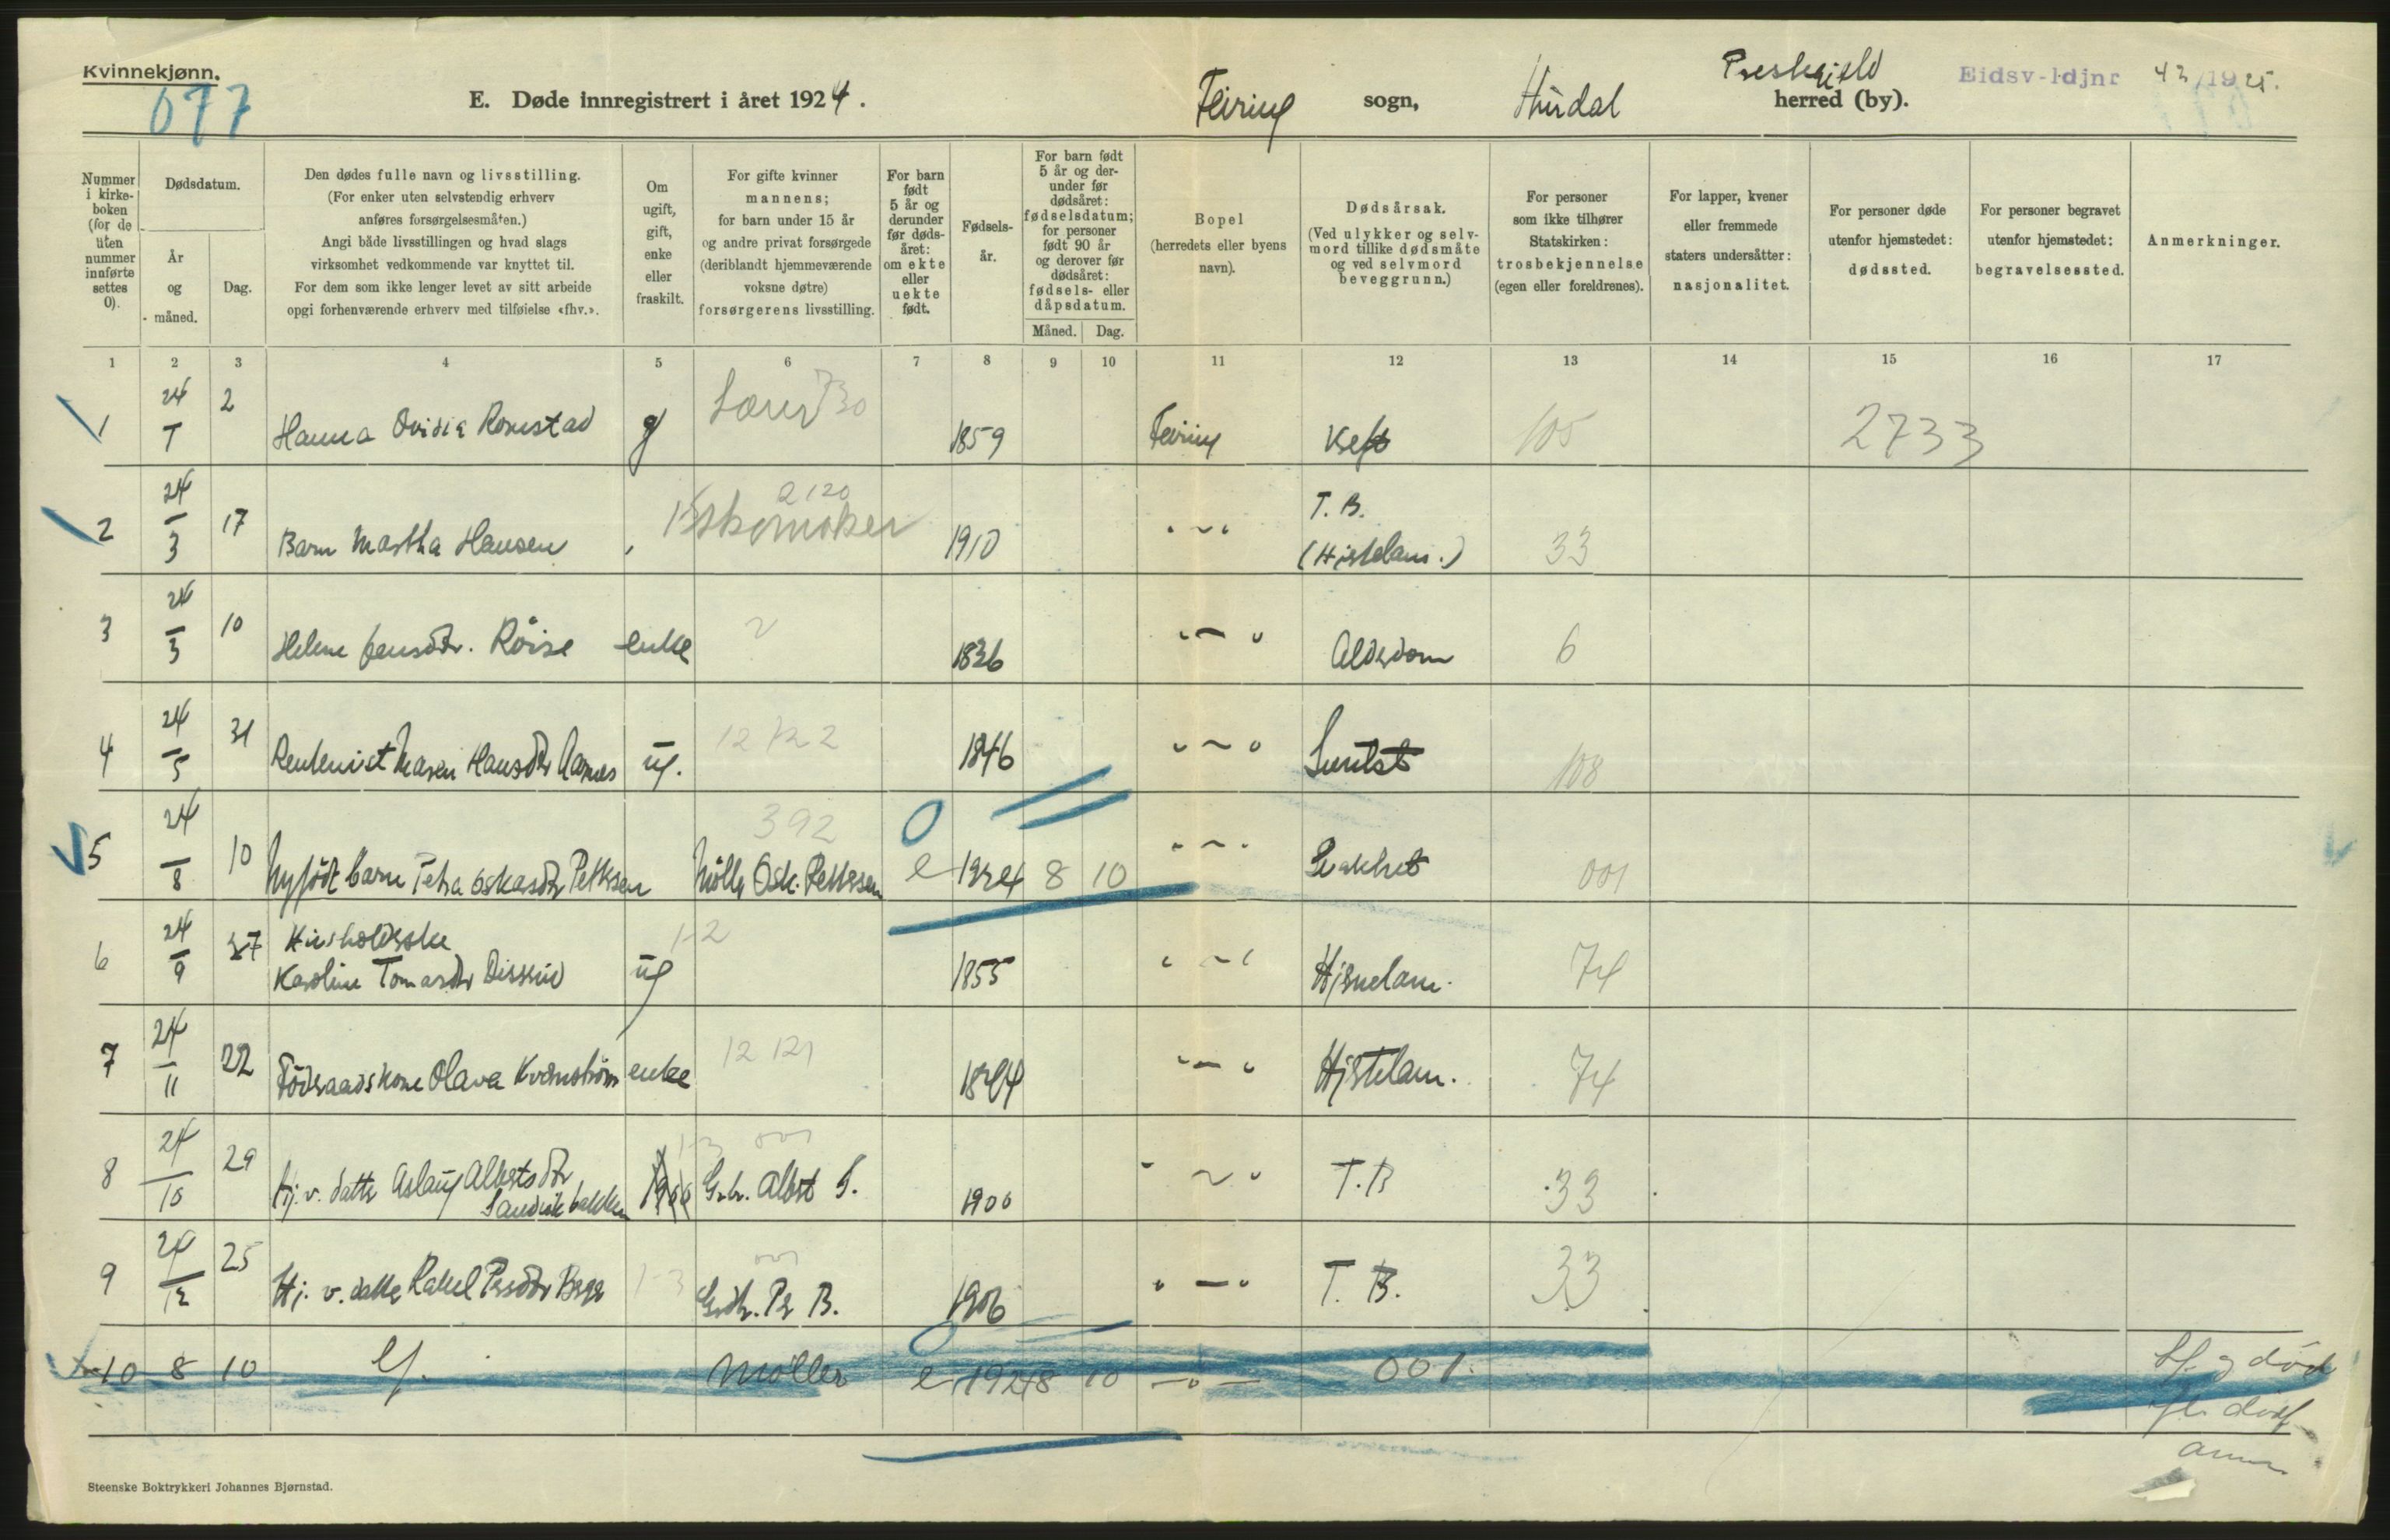 Kvinnekjønn.
077
E. Døde innregistrert i året 1924.
Feiring sogn, Hurdal herred (by).
Eidsv-ldjnr 42/1925.
Nummer i kirke-boken (for de uten nummer innførte settes 0).
Dødsdatum.
År og måned.
Dag.
Den dødes fulle navn og livsstilling.
(For enker uten selvstendig erhverv
anføres forsørgelsesmåten.)
Angi både livsstillingen og hvad slags
virksomhet vedkommende var knyttet til.
For dem som ikke lenger levet av sitt arbeide
opgi forhenværende erhverv med tilføielse «fhv.».
Om ugift, gift, enke eller fraskilt.
For gifte kvinner
mannens;
for barn under 15 år
og andre privat forsørgede
(deriblandt hjemmeværende
voksne døtre)
forsørgerens livsstilling.
For barn født 5 år og derunder før døds-året: om ekte eller uekte født.
Fødsels-år.
For barn født 5 år og der-under før dødsåret: fødselsdatum; for personer født 90 år og derover før dødsåret: fødsels- eller dåpsdatum.
Måned. Dag.
Bopel
(herredets eller byens
navn).
Dødsårsak.
(Ved ulykker og selv-
mord tillike dødsmåte
og ved selvmord
beveggrunn.)
For personer
som ikke tilhører
Statskirken:
trosbekjennelse
(egen eller foreldrenes).
For lapper, kvener
eller fremmede
staters undersåtter:
nasjonalitet.
For personer døde
utenfor hjemstedet:
dødssted.
For personer begravet
utenfor hjemstedet:
begravelsessted.
Anmerkninger.
1 2 3 4 5 6 7 8 9 10 11 12 13 14 15 16 17
1 24/1 2 Hanna Ovidia Romstad g 1859 Feiring Kreft 105 2733
2 24/3 17 Barn Martha Hansen 2120 Skomaker 1910 " — " T. B. 33
3 24/3 10 Helene Jensdtr. Røise enke 1836 " — " Alderdom 6
4 24/5 31 Maren Hansdtr Aarnes ug. 12122 1846 " — " 108
5 24/8 10 Nyfødt barn Petra Oskarsdtr Pettersen 392 Møller Osk. Pettersen e 1924 8 10 " — " Svakhet 001
6 24/9 27 Husholderske
Karoline Tomasdtr Disserud ug 1-2 1855 " — " Hjernelam. 74
7 24/11 22 Føderaadskone Olava Kvernstrøm enke 12 121 1844 " — " Hjertelam. 74
8 24/10 29 Hj. v. datter Aslaug Albertsdtr
Sandvikbakken 1-3 001 Grbr. Albert S. 1900 " — " T. B 33
9 24/12 25 Hj. v. datter Rakel Persdtr Berge 1-3 001 Grdbr. Per B. 1906 " — " T. B. 33
10 8 10 Møller e 1924 8 10 — " — 001.
Steenske Boktrykkeri Johannes Bjørnstad.